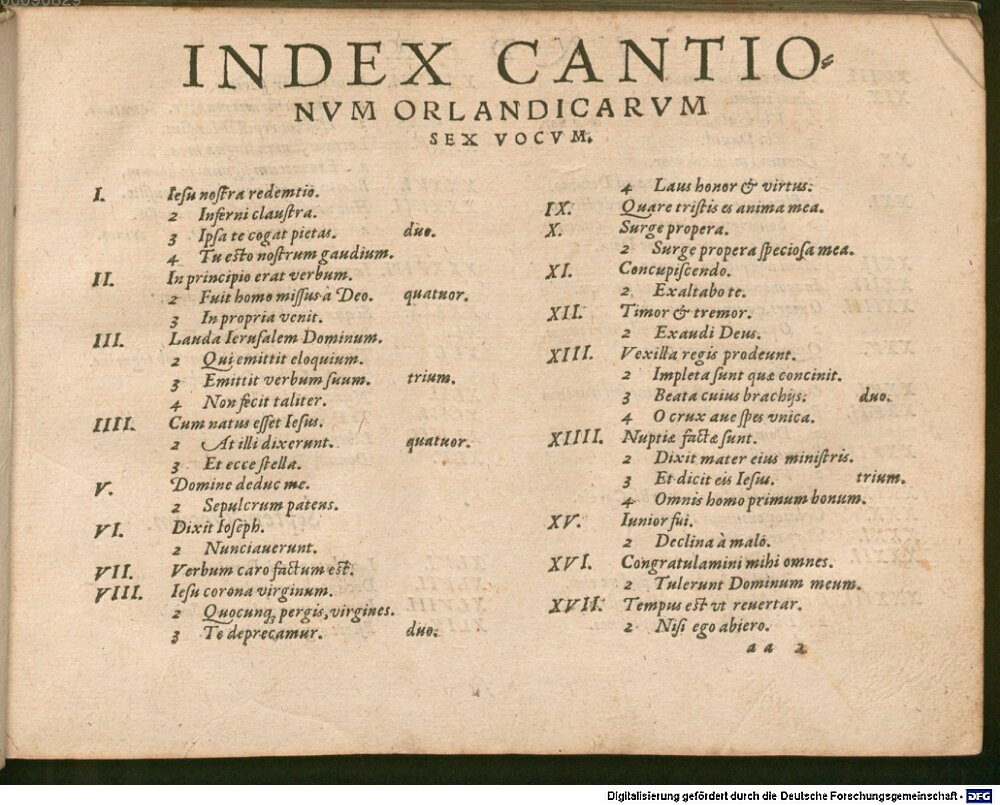 INDEX CANTIO⸗
NVM ORLANDICARVM
SEX VOCVM.
I. Iesu nostra redemtiō.
2 Inferni claustra.
3 Ipsa te cogat pietas. duo.
4 Tu esto nostrum gaudium.
II. In principio erat verbum.
2 Fuit homo missus à Deo. quatuor.
3 In propria venit.
III. Lauda Ierusalem Dominum.
2 Qui emittit eloquium.
3 Emittit verbum suum. trium.
4 Non fecit taliter.
IIII. Cum natus esset Iesus.
2 At illi dixerunt. quatuor.
3 Et ecce stella.
V. Domine deduc me.
2 Sepulcrum patens.
VI. Dixit Ioseph.
2 Nunciauerunt.
VII. Verbum caro factum est.
VIII. Iesu corona virginum.
2 Quocunq; pergis, virgines.
3 Te deprecamur. duo.
4 Laus honor & virtus.
IX. Quare tristis es anima mea.
X. Surge propera.
2 Surge propera speciosa mea.
XI. Concupiscendo.
2 Exaltabo te.
XII. Timor & tremor.
2 Exaudi Deus.
XIII. Vexilla regis prodeunt.
2 Impleta sunt quæ concinit.
3 Beata cuius brachijs. duo.
4 O crux aue spes vnica.
XIIII. Nuptiæ factæ sunt.
2 Dixit mater eius ministris.
3 Et dicit eis Iesus. trium.
4 Omnis homo primum bonum.
XV. Iunior fui.
2 Declina à malo.
XVI. Congratulamini mihi omnes.
2 Tulerunt Dominum meum.
XVII. Tempus est vt reuertar.
2 Nisi ego abiero.
aa 2
Digitalisierung gefördert durch die Deutsche Forschungsgemeinschaft - DFG